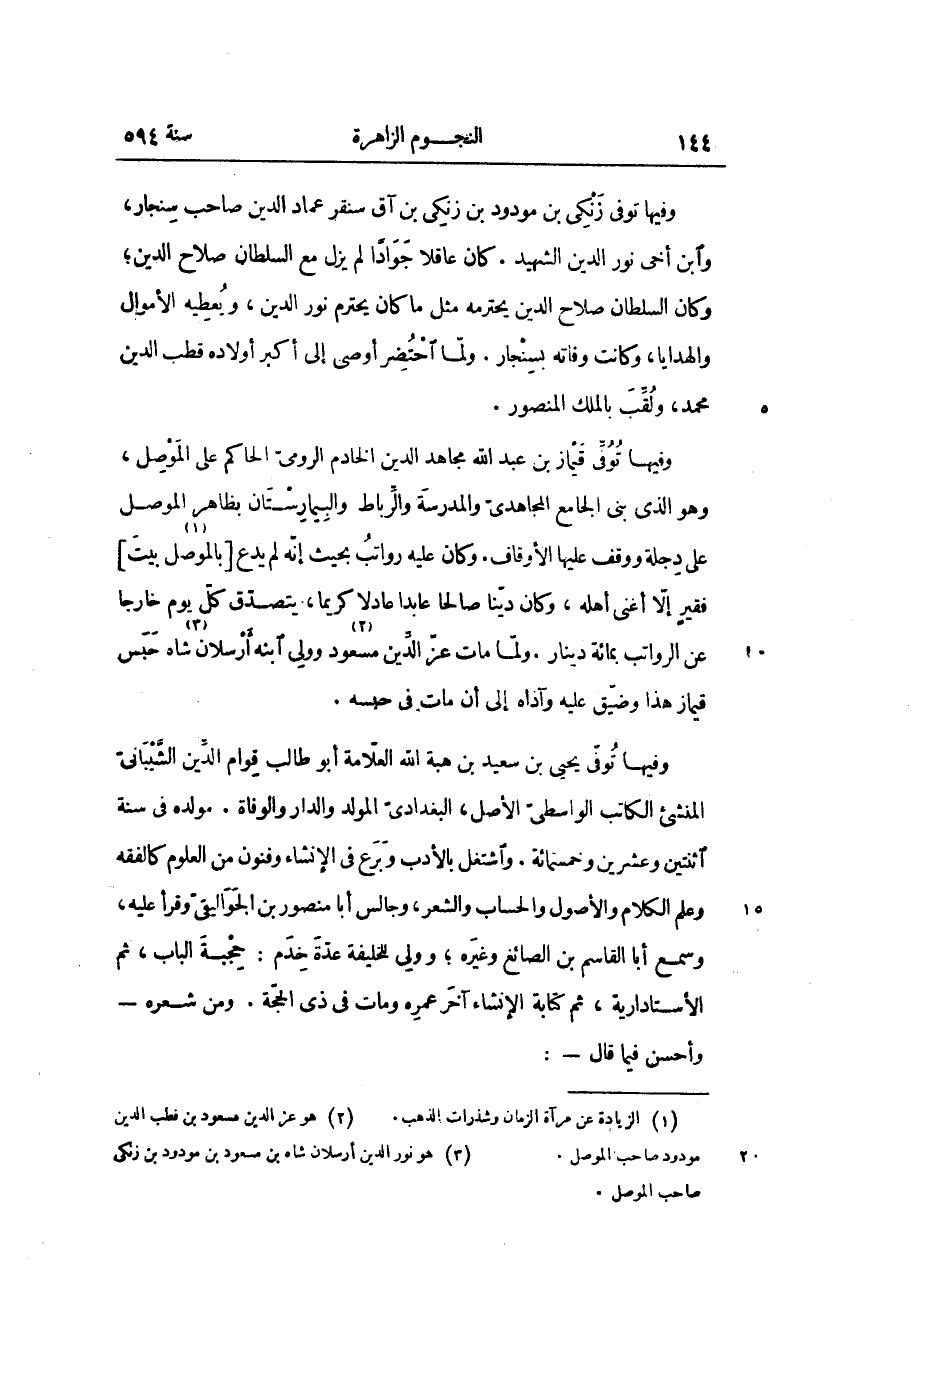 ١٤٤ النجوم الزاهرة سنة ٥٩٤
وفيها توفى زَنْكِى بن مودود بن زنكِى بن آق سنقر عماد الدين صاحب سِنجار،
وآبن أخى نور الدين الشهيد . كان عاقلا جَوَادًا لم يزل مع السلطان صلاح الدين؛
وكان السلطان صلاح الدين يحترمه مثل ما كان يحترم نور الدين ، ويُعطِيه الأموال
والهدايا، وكانت وفاته بسِنْجار . ولمّا آحْتُضِر أوصى إلى أكبر أولاده قطب الدين
محمد، ولُقِّبَ بالملك المنصور . ٥
وفيها تُوُفِّى قَيْماز بن عبد الله مجاهد الدين الخادم الرومىّ الحاكم على المَوْصِل ،
وهو الذى بنى الجامع المجاهدىّ والمدرسَة والرِّباط والبِيمارِسْتَان بظاهر الموصل
على دِجلة ووقف عليها الأوقاف. وكان عليه رواتبُ بحيث إنّه لم يدع [بالموصل بيتَ] (١)
فقيرٍ إلّا أغنى أهله ، وكان ديّنا صالحا عابدا عادلا كريما، يتصدّق كلّ يوم خارجا
عن الرواتب بمائة دينار . ولمّا مات عزّ الدِّين (٢) مسعود وولِى آبنه أَرْسلان شاه (٣) حَبَس ١٠
قيماز هذا وضيّق عليه وآذاه إلى أن مات فى حبسه .
وفيها تُوفّى يحيى بن سعيد بن هبة الله العلّامة أبو طالب قِوام الدِّين الشَّيْبَانىّ
المنشئ الكاتب الواسطىّ الأصل، البغدادىّ المولد والدار والوفاة . مولده فى سنة
آثنتين وعشرين وخمسمائة . وآشتغل بالأدب وبَرَع فى الإنشاء وفنون من العلوم كالفقه
وعلم الكلام والأصول والحساب والشعر، وجالس أبا منصور بن الجَوَالِيقىّ وقرأ عليه، ١٥
وسمع أبا القاسم بن الصائغ وغيَره ؛ وولِى للخليفة عدّةَ خِدَم : حِجْبةَ الباب ، ثم
الأستادارية ، ثم كتابة الإنشاء آخَر عمره ومات فى ذى الحجّة . ومن شعره —
وأحسن فيما قال — :
(١) الزيادة عن مرآة الزمان وشذرات الذهب. (٢) هو عز الدين مسعود بن قطب الدين
مودود صاحب الموصل . (٣) هو نور الدين أرسلان شاه بن مسعود بن مودود بن زنكى ٢٠
صاحب الموصل .